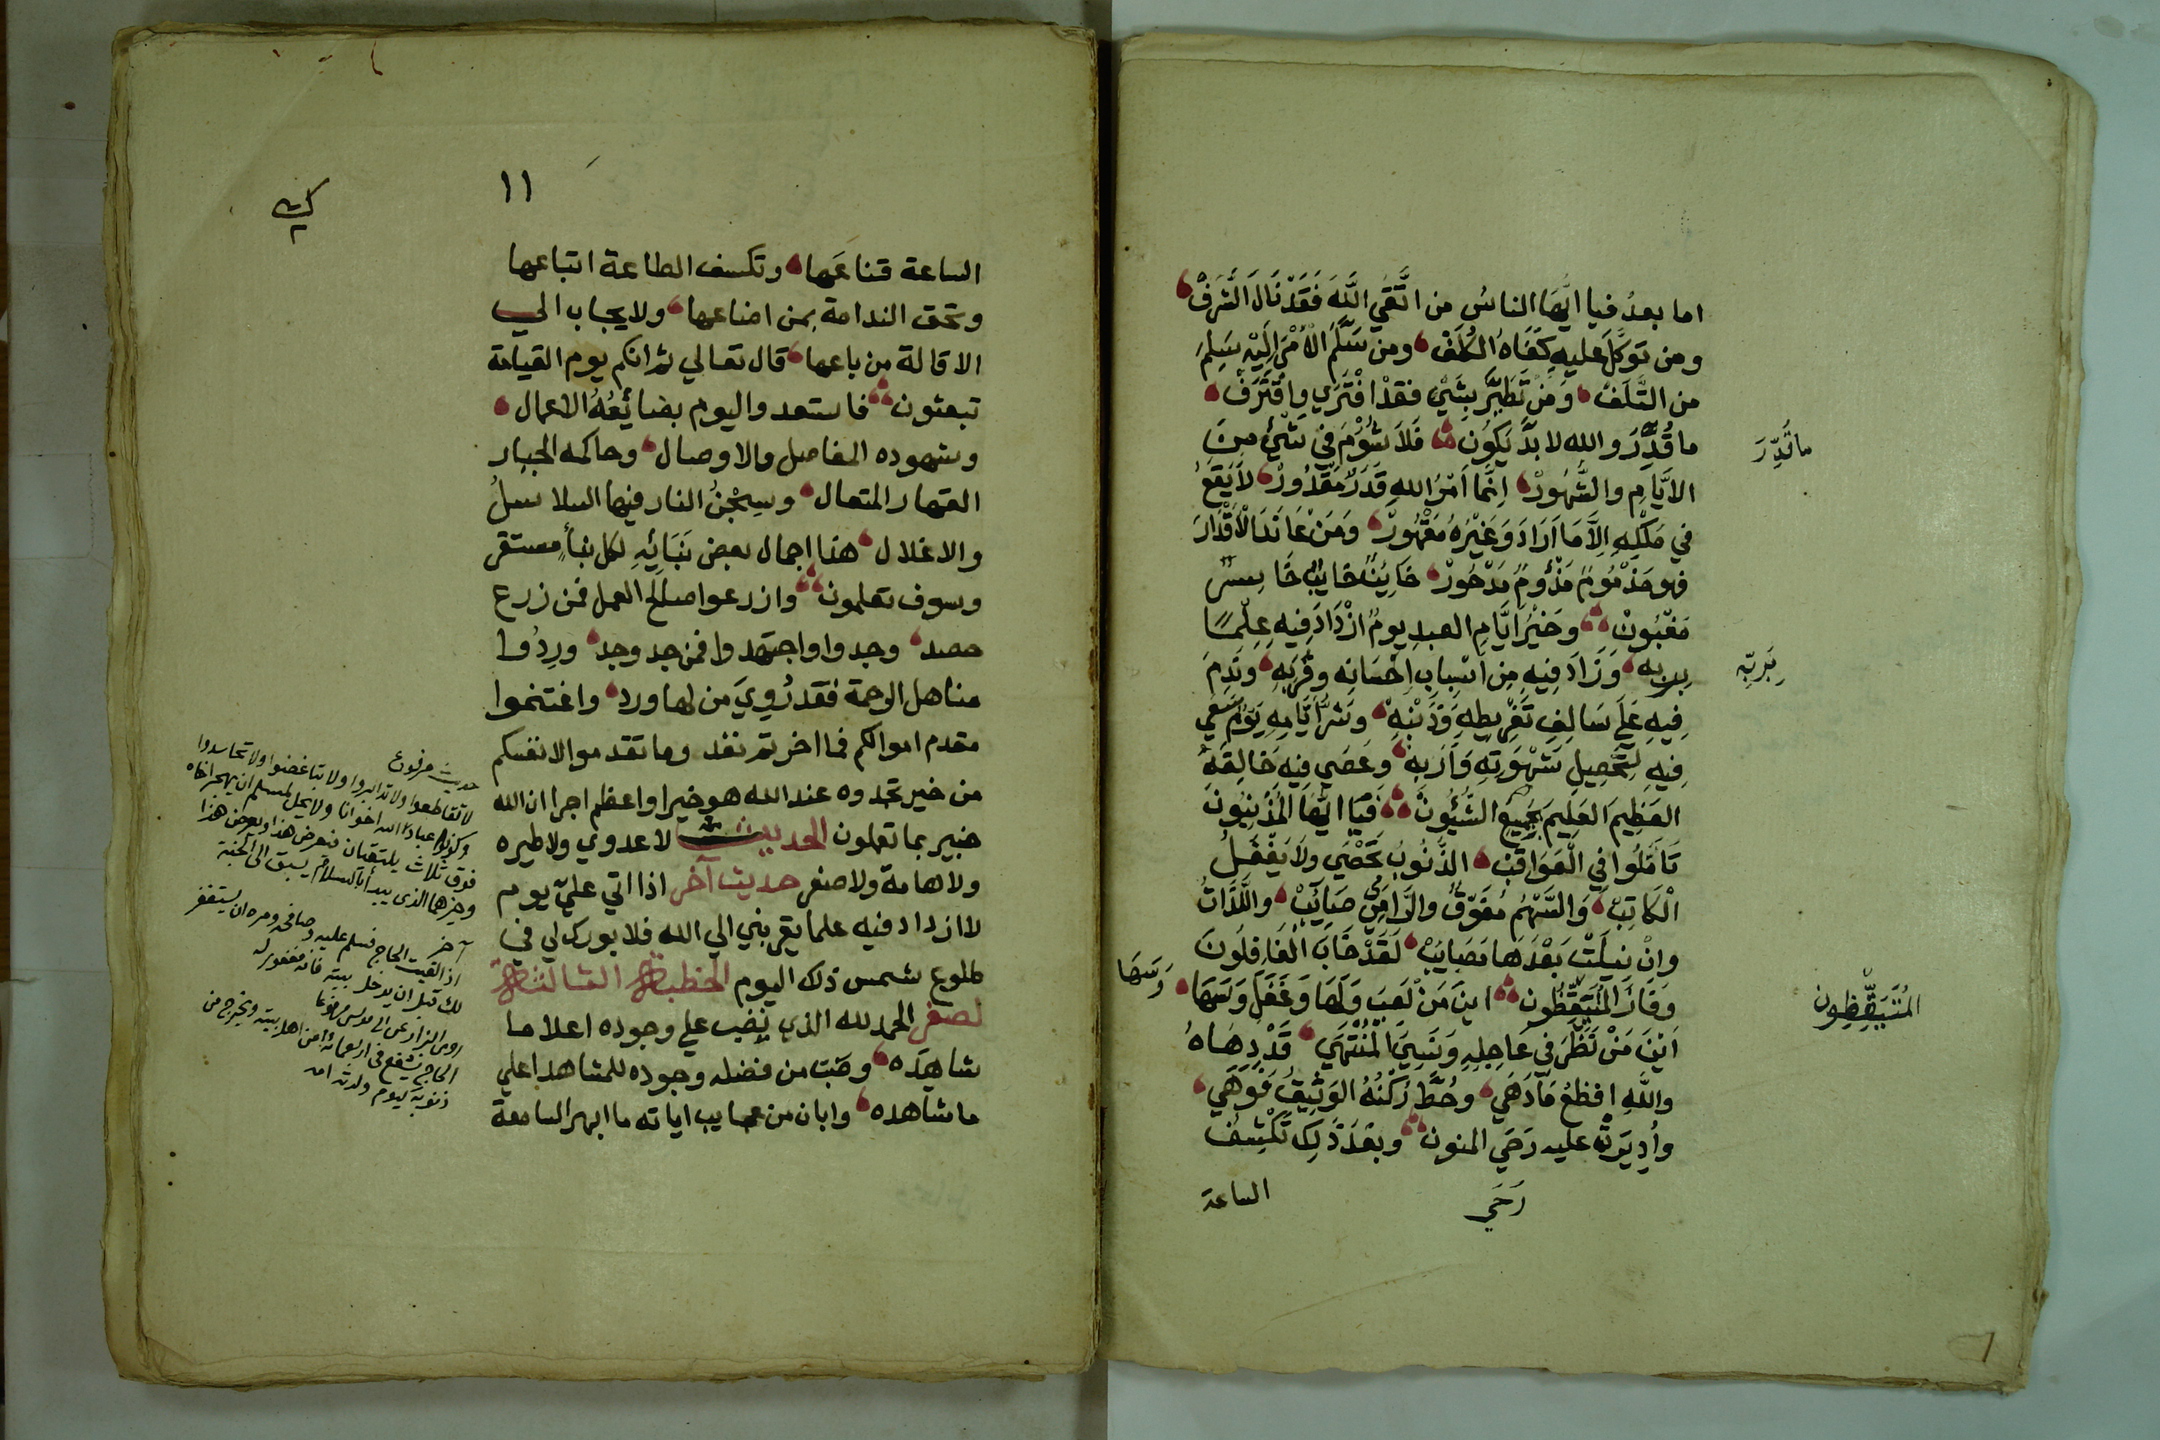 اما بعدُ فيا ايُّهَا الناسُ من اتَّقي اللَّهَ فَقَدْ نَالَ الشَّرَفْ
ومن تَوكَّلَ عليهِ كَفَاهُ الكُلَفْ ومن سَلَّمَ الأمْرَ اِلَيْهِ سَلِمَ
من التَّلَفْ وَمَنْ تَطَيَّرَ بِشَيْءٍ فقدْ افْتَرَي وِاقْتَرَفْ
ما قُدِّرَ والله لا بدَّ يَكُونْ فَلاَ شُؤْمَ في شَيْءٍ مِنَ
ما قُدِّرَ
الاَيَّامِ والشُّهُورْ اِنَّمَا اَمْرُ اللهِ قَدَرٌ مَقْدُورْ لاَ يَقَعُ
في مُلْكِهِ اِلاَّ مَا اَرَادَ وَغَيْرُهُ مَقْهُورْ وَمَنْ عَانَدَ الْاَقْدَارَ
فهو مَذْمُومٌ مَذْؤُمٌ مَدْحُورْ خَايِنٌ خايبٌ خَاسِرٌ
مَغْبُونْ وخَيْرُ اَيَّامِ العبدِ يومٌ ازْدَادَ فِيهِ عِلْمًا
بربه وَزَادَ فِيهِ مِن اَسْبابِ اِحْسَانِه وقُرْبَهِ ونَدِمَ
بِرَبِّه
فِيهِ عَلَي سَالِفِ تَفْرِيطِهِ وَذَنْبِهْ وشَرُّ اَيَّامِهِ يَوْمٌ سَعَي
فِيهِ لِتَحْصِيلِ شَهْوَتِهِ وَاَرَبِهْ وعَصَي فِيهِ خَالِقَهُ
العَظِيمَ العَلِيمَ بجَمِيعِ الشُّيُونْ فَيَا ايُّهَا المُذْنِبُونَ
تَأمَّلُوا في الْعَوَاقِبْ الذُّنُوبُ تُحْصَي ولاَ يَغْفَلُ
الْكَاتِبْ وَالسَّهْمُ مُفَوَّقٌ والرَّامِي صَايِبْ واللَّذَاتُ
وِانْ نِيلَتْ بَعْدَهَا مَصَايِبْ لَقَدْ خَابَ الْغَافِلُونَ
وَفَازَ المُتَيَقِّظُونْ اينَ مَنْ لَعِبَ وَلَهَا وَغَفَلَ وَسَهَا
وَسَهَا
المُتَيَقِّظِون
اَيْنَ مَنْ نَظَرَ في عَاجِلِهِ وَنَسِيَ الْمُنْتَهَي قَدْ دِهَاهُ
واللَّهِ افظعُ مَا دَهَي وحُطَّ رُكْنُهُ الوَثِيقُ فَوَهَي
وأُدِيرَتْ عليه رَحَي المنون وبَعْدَ ذَلِكَ تَكْشِفُ
رَحَي
الساعة
١١
الساعة قناعَها وتكسف الطاعة اتباعها
وتحق الندامة بمن اضاعها ولا يجاب الي
الاقالة من باعها قال تعالي ثم انكم يوم القيامة
تبعثون فاستعدوا ليوم بضائعُهُ الاعمال
وشهوده المفاصل والاوصال وحاكمه الجبار
القهار المتعال وسِجْنُ النار فيها السلاسلُ
والاغلال هذا اجمال بعض نَبَائِهِ لكل نبأٍ مستقر
وسوف تعلمون وازرعوا صالح العمل فمن زرع
حصد وجدوا واجتهدوا فمن جد وجد ورِدُوا
مناهل الرحمة فقد رُوِيَ من لها ورد واغتنموا
مقدم اموالكم فما اخرتم نفد وما تقدموا لانفسكم
من خير تجدوه عند الله هو خيرا واعظم اجرا ان الله
خبير بما تعملون الحديث لا عدوي ولا طيره
ولا هامة ولا صفر حديث آخر اذا اتي عليّ يوم
لا ازداد فيه علما يقربني الي الله فلا بورك لي في
طلوع شمس ذلك اليوم الخطبة الثالثة
لصفر الحمد لله الذي نصب علي وجوده اعلاما
شاهِدَه وصَبّ من فضله وجوده للمشاهد اعلي
ما شاهده وابان من عجايب اياته ما ابهر السامعة
حديث مرفوع
لا تقاطعوا ولا تدابروا ولا تباغضوا ولا تحاسدوا
وكونوا عباد الله اخوانا ولا يحل لمسلم ان يهجر اخاه
فوق ثلاث يلتقيان فيعرض هذا ويعرض هذا
وخيرهما الذي يبدأ بالسلام يسبق الى الجنة
آخر
اذا لقيت الحاج فسلم عليه وصافحه ومره ان يستغفر
لك قبل ان يدخل بيته فانه مغفور له
روى البزار عن ابي موسى مرفوعا
الحاج يشفع في اربعمائة من اهل بيته ويخرج من
ذنوبه كيوم ولدته امه